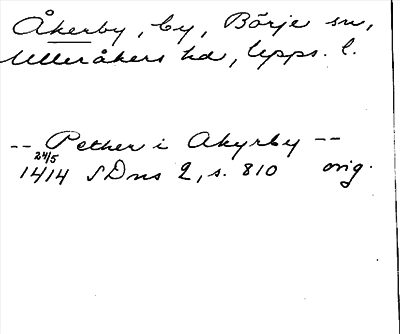 Åkerby, by, Börje sn,
Ulleråkers hd, Upps. l.
-- Pether i Akyrby --
24/5
1414 SDns 2, s. 810 orig.